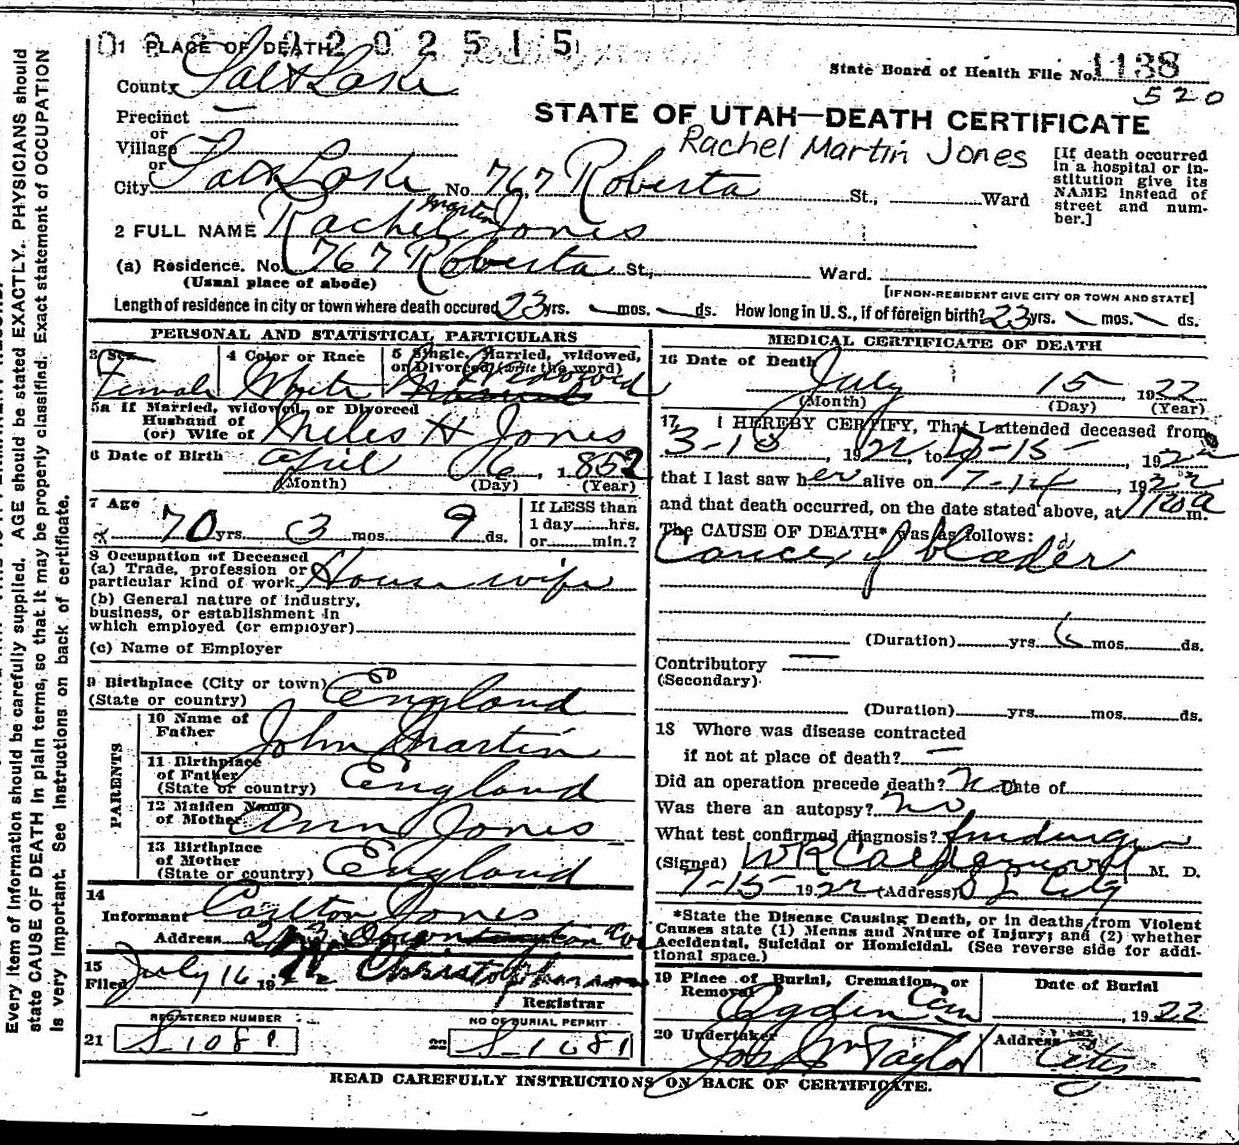 1 PLACE OF DEATH
State Board of Health File No. 1138
County Salt Lake
520
Precinct —
or
Village
or
STATE OF UTAH—DEATH CERTIFICATE
Rachel Martin Jones
[If death occurred in a hospital or institution give its NAME instead of street and number.]
City Salt Lake No. 767 Roberta St., Ward
2 FULL NAME Rachel Martin Jones
(a) Residence. No. 767 Roberta St., Ward.
(Usual place of abode)
[IF NON-RESIDENT GIVE CITY OR TOWN AND STATE]
Length of residence in city or town where death occured 23 yrs. — mos. — ds. How long in U. S., if of foreign birth? 23 yrs. mos. ds.
PERSONAL AND STATISTICAL PARTICULARS
3 Sex
Female
4 Color or Race
White
5 Single, Married, widowed, or Divorced (write the word)
Widowed
5a If Married, widowed, or Divorced
Husband of
(or) Wife of Miles H Jones
6 Date of Birth April 06, 1852
(Month) (Day) (Year)
7 Age
70 yrs 3 mos 9 ds.
If LESS than 1 day hrs. or min.?
8 Occupation of Deceased
(a) Trade, profession or particular kind of work House wife
(b) General nature of industry, business, or establishment in which employed (or employer)
(c) Name of Employer
9 Birthplace (City or town)
(State or country) England
PARENTS
10 Name of Father John Martin
11 Birthplace of Father
(State or country) England
12 Maiden Name of Mother Ann Jones
13 Birthplace of Mother
(State or country) England
14
Informant Carlton Jones
Address
15
Filed July 16 1922 Christopherson
Registrar
REGISTERED NUMBER
21 S-1081
NO OF BURIAL PERMIT
22 S-1081
MEDICAL CERTIFICATE OF DEATH
16 Date of Death
July 15 1922
(Month) (Day) (Year)
17 I HEREBY CERTIFY, That I attended deceased from
1922, to 7-15, 1922
that I last saw her alive on 7-14, 1922
and that death occurred, on the date stated above, at m.
The CAUSE OF DEATH* was as follows:
Cancer of bladder
(Duration) yrs. 6 mos. ds.
Contributory —
(Secondary)
(Duration) yrs. mos. ds.
18 Where was disease contracted
if not at place of death? —
Did an operation precede death? No Date of
Was there an autopsy? no
What test confirmed diagnosis?
(Signed) M. D.
7-15 1922 (Address) S L City
*State the Disease Causing Death, or in deaths from Violent
Causes state (1) Means and Nature of Injury; and (2) whether
Accidental, Suicidal or Homicidal. (See reverse side for addi-
tional space.)
19 Place of Burial, Cremation, or Removal
Ogden Cem
Date of Burial
, 1922
20 Undertaker
John Taylor
Address
City
READ CAREFULLY INSTRUCTIONS ON BACK OF CERTIFICATE.
Every item of information should be carefully supplied. AGE should be stated EXACTLY. PHYSICIANS should
state CAUSE OF DEATH in plain terms, so that it may be properly classified. Exact statement of OCCUPATION
is very important. See instructions on back of certificate.